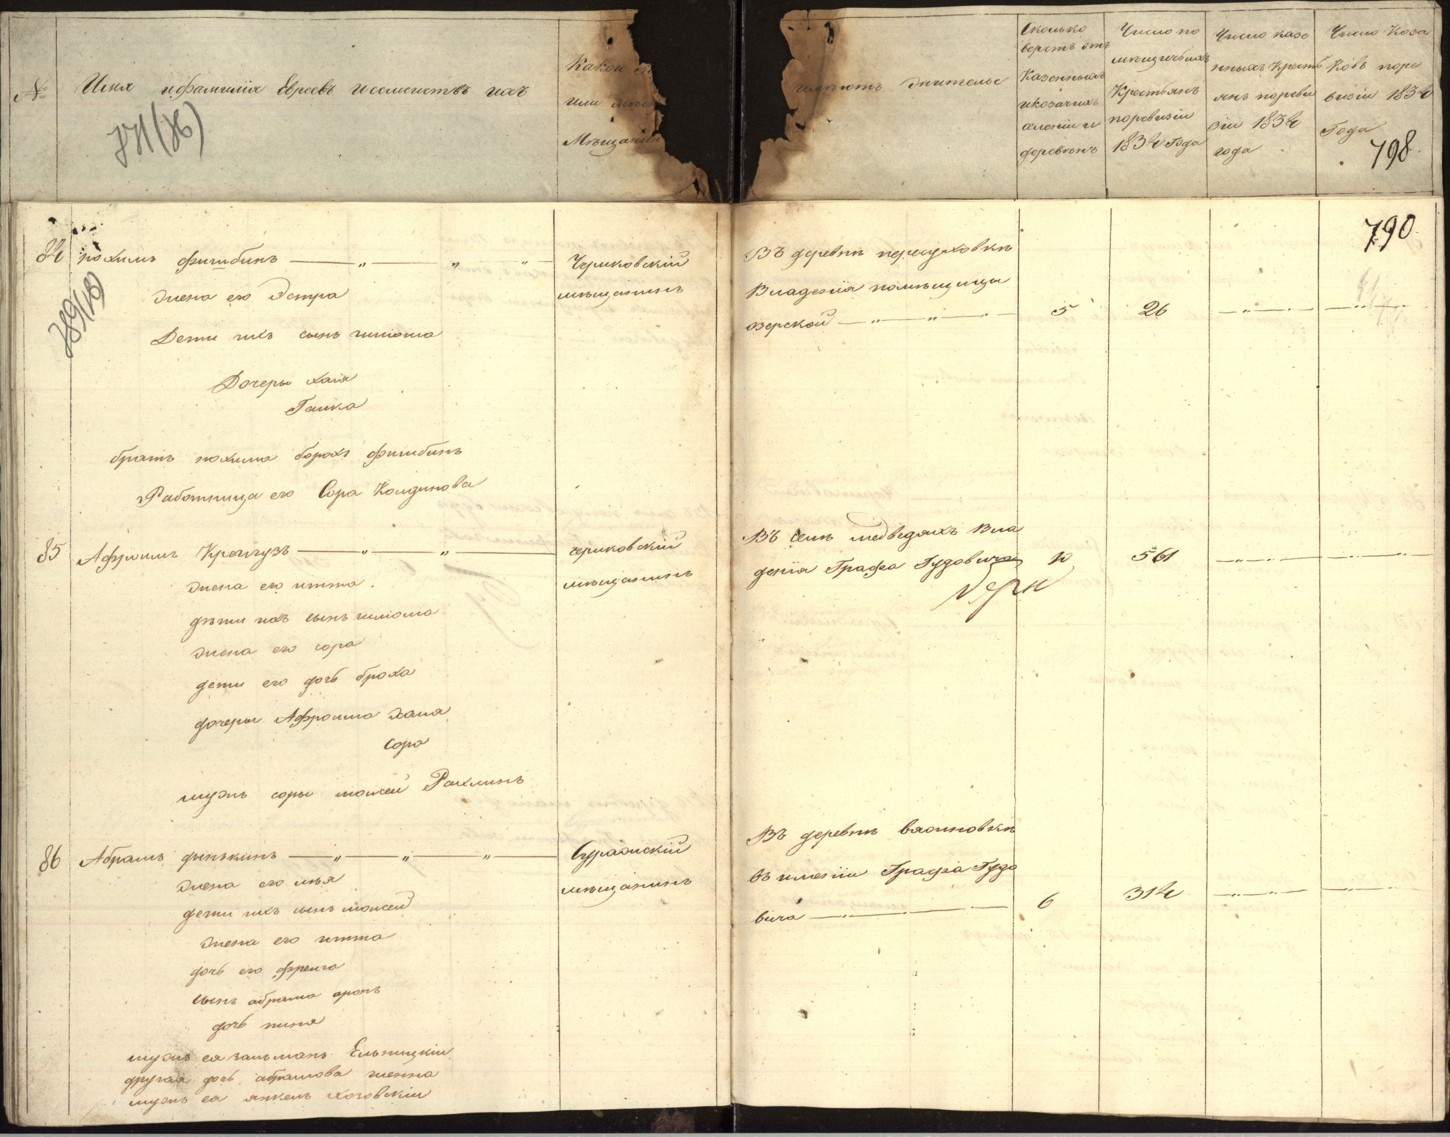 №
Имя и фамилия Евреевъ и семействъ ихъ
Какой
или
Мещанинъ
имеютъ жительс
Сколько
верстъ отъ
Казенныхъ
и козачихъ
селении и
деревень
Число по
мещичьихъ
Крестьянъ
по ревизии
1834 Года
Число казе
нныхъ Кресть
янъ по реви
зiи 1834
года
Число Коза
ковъ по ре
визiи 1834
Года
798
790
84
нохимъ фишбинъ — „ „ „
жена его Эстра
Дети ихъ сынъ шлiома
Дочеры хая
Ганка
братъ нохима борохъ фишбинъ
Работница его Сора
Чериковскiй
мещанинъ
Въ деревне
Владенiя помещицы
озерской — „ — „ —
5
26
85
Афроимъ — „ — „ —
жена его итта
дети ихъ сынъ шлiома
жена его сора
дети его дочь броха
дочеры Афроима хана
сора
мужъ соры мовсей Рахлинъ
чериковскiй
мещанинъ
Въ селе медведяхъ Вла
денiя Графа Гудовича
561
86
Абрамъ дынькинъ — „ — „ — „ —
жена его
дети ихъ сынъ мовсей
жена его итта
дочь его фрейга
сынъ абрама аронъ
дочь пиня
мужъ ея зальманъ Ельницкiй
другая дочь абрамова генна
мужъ ея янкель
Суражскiй
мещанинъ
Въ деревне
въ имении Графа Гудо
вича —
6
314